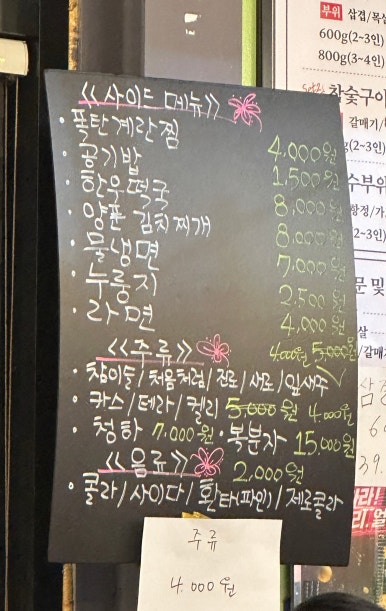 <<사이드 메뉴>>
· 폭탄계란찜 4,000원
· 공기밥 1,500원
· 한우떡국 8,000원
· 양푼 김치찌개 8,000원
· 물냉면 7,000원
· 누룽지 2,500원
· 라면 4,000원
<<주류>> 4,000원 5,000원
· 참이슬/처음처럼/진로/새로/잎새주
· 카스/테라/켈리 5,000원 4,000원
· 청하 7,000원 · 복분자 15,000원
<<음료>> 2,000원
· 콜라/사이다/환타(파인)/제로콜라
주류
4,000원
부위 삼겹/목살
600g(2~3인)
800g(3~4인)
참숯구이
갈매기/
(2~3인)
수부위
항정/가
(2~3인)
문 및
/갈매기